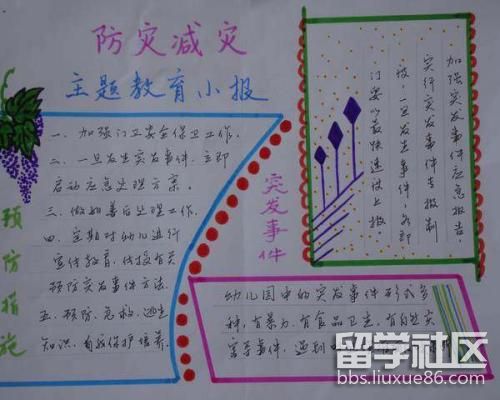 防灾减灾
主题教育小报
预防措施
一、加强门卫安全保卫工作。
二、一旦发生突发事件,立即
启动应急处理方案。
三、做好善后处理工作。
四、定期对幼儿进行
宣传教育,传授有关
预防突发事件方法。
五、预防、急救、逃生
知识、自我保护培养。
突发事件
加强突发事件应急报告,
实行突发事件专报制
度,一旦发生事件,各部
门要以最快速度上报。
幼儿园中的突发事件形式多
种,有暴力、有食品卫生、有自然灾
害等事件,遇到
留学社区
bbs.liuxue86.com